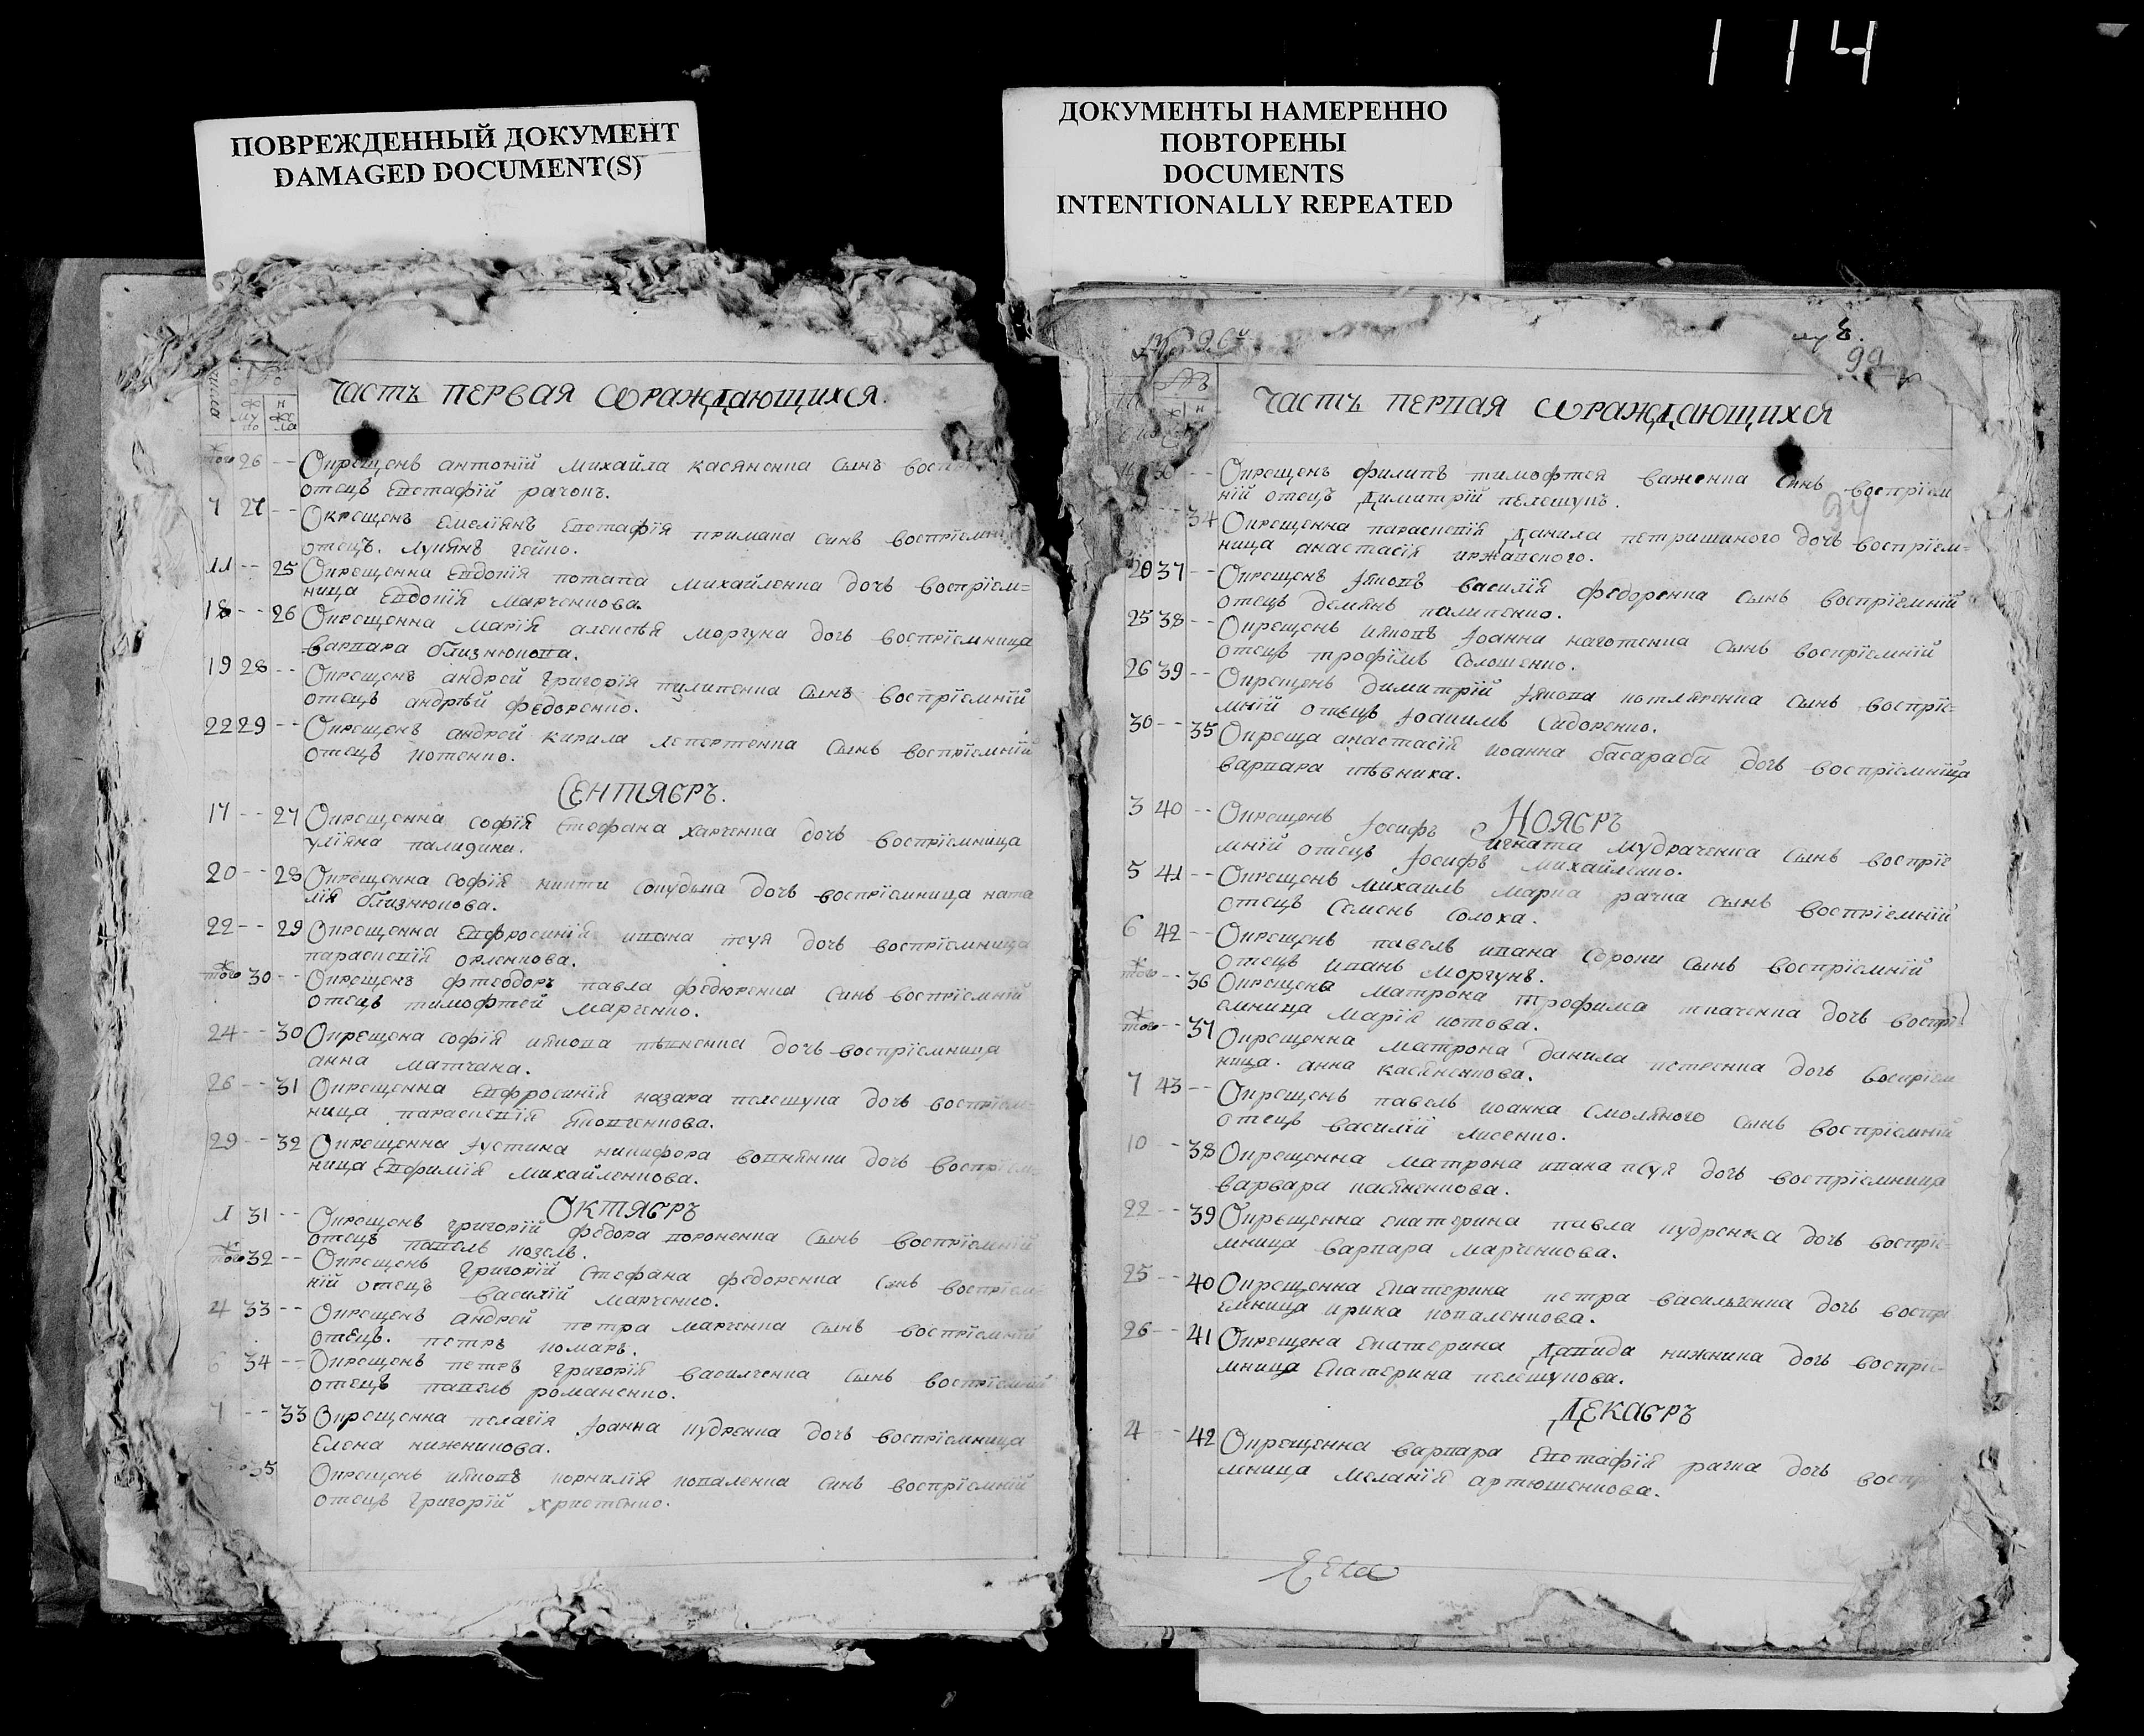 114
ПОВРЕЖДЕННЫЙ ДОКУМЕНТ
DAMAGED DOCUMENT(S)
ДОКУМЕНТЫ НАМЕРЕННО
ПОВТОРЕНЫ
DOCUMENTS
INTENTIONALLY REPEATED
Часть первая ѡ раждающихся.
того 26 -- Окрещенъ антоній михайла касяненка сынъ
отецъ Евстафій рачокъ.
7 27 -- Окрещенъ Емеліянъ Евстафія примака синъ воспріемн
отецъ. Лукянъ гейко.
11 -- 25 Окрещенна Евдокія потапа михайленка дочь воспріем=
ница Евдокія Марченкова.
18 -- 26 Окрещенна Марія алексѣя моргуна дочь воспріемница
варвара близнюкова.
19 28 -- Окрещенъ андрей григорія пилипенка сынъ воспріемній
отецъ андрѣй федоренко.
22 29 -- Окрещенъ андрей кирила лепертенка сынъ воспріемній
отецъ котенко.
Сентябръ.
17 -- 27 Окрещенна софія Стефана харченка дочь воспріемница
уліяна палидина.
20 -- 28 Окрещенна софія никити сокудьма дочь воспріемница ната
лія близнюкова.
22 -- 29 Окрещенна Евфросинія ивана псуя дочь воспріемница
параскевія орленкова.
того 30 -- Окрещенъ фтеодоръ павла федюренка синъ воспріемній
отецъ тимофтей марченко.
24 -- 30 Окрещена софія иякова пѣвненка дочь воспріемница
анна матчана.
26 -- 31 Окрещенна Евфросинія назара пелешука дочь воспріем
ница параскевія Яковченкова.
29 -- 32 Окрещенна Іустина никифора вовнянки дочь воспріем=
ница Евфимія михайленкова.
Октябръ
1 31 -- Окрещенъ григорій федора вороненка сынъ воспріемній
отецъ павелъ козелъ.
того 32 -- Окрещенъ григорій Стефана федоренка синъ воспріем
ній отецъ василій марченко.
4 33 -- Окрещенъ андрей петра марченка сынъ воспріемній
отецъ. петръ комаръ.
6 34 -- Окрещенъ петръ григорія василченка сынъ воспріемній
отецъ павелъ романенко.
7 -- 33 Окрещенна пелагія Іоанна кудренка дочь воспріемница
Елена нижникова.
35 Окрещенъ ияковъ корнилія коваленка синъ воспріемній
отецъ григорій христенко.
99
Часть первая ѡ раждающихся
-- Окрещенъ филипъ тимофтея важенка синъ воспріем
ній отецъ димитрій пелешукъ.
34 Окрещенна параскевія данила петришиного дочь воспріем=
ница анастасія иржавского.
20 37 -- Окрещенъ Іяковъ василія федоренка сынъ воспріемній
отецъ демянъ палипенко.
25 38 -- Окрещенъ ияковъ Іоанна наготенка сынъ воспріемній
отецъ трофімъ Солошенко.
26 39 -- Окрещенъ димитрій Іякова котляренка сынъ воспріе=
мній отецъ Іоакимъ Сидоренко.
30 -- 35 Окреща анастасія иоанна басараба дочь воспріемніца
варвара пѣвника.
Ноябръ
3 40 -- Окрещенъ Іосифъ игната мудраченка сынъ воспріе
мній отецъ Іосифъ михайленко.
5 41 -- Окрещенъ михаилъ марка рачка сынъ воспріемній
отецъ Семенъ Солоха.
6 42 -- Окрещенъ павелъ ивана Сороки сынъ воспріемній
отецъ иванъ моргунъ.
того -- 36 Окрещена матрона трофима ткаченка дочь воспрі
емница марія котова.
того -- 37 Окрещенна матрона данила петренка дочь воспріем
ница. анна касяненкова.
7 43 -- Окрещенъ павелъ иоанна Смоляного сынъ воспріемній
отецъ василій лисенко.
10 -- 38 Окрещенна матрона ивана псуя дочь воспріемница
варвара касяненкова.
22 -- 39 Окрещенна екатерина павла кудренка дочь воспріе=
мница варвара марченкова.
25 -- 40 Окрещенна Екатерина петра васильченка дочь воспрі
емница ирина коваленкова.
26 -- 41 Окрещена Екатерина Давида нижника дочь воспріе-
мница Екатерина пелешукова.
Декабръ
4 -- 42 Окрещенна варвара Евстафій рачка дочь воспрі
емница меланія артюшенкова.